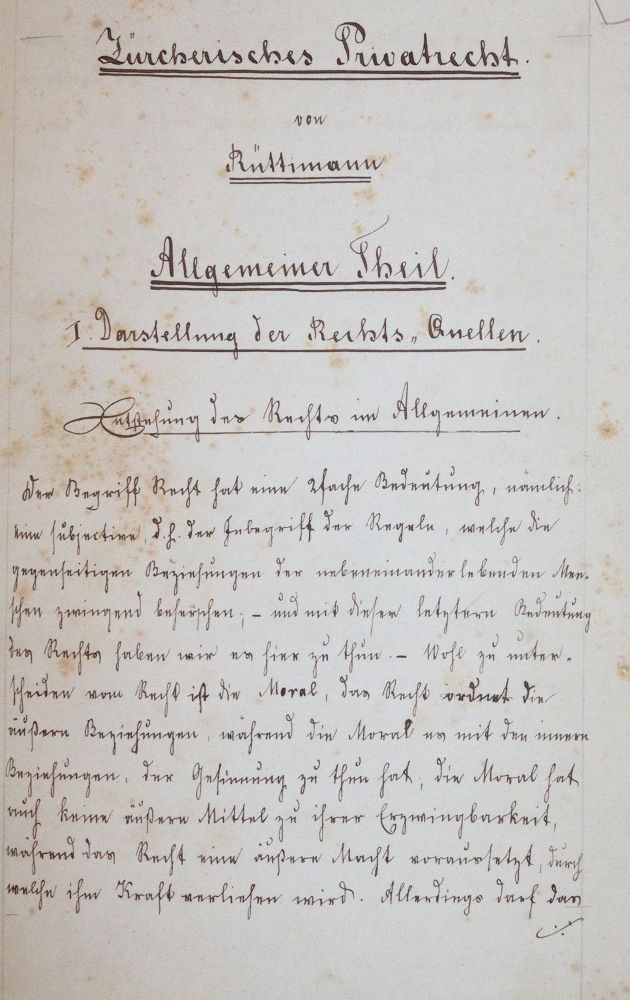 Zürcherisches Privatrecht.
von
Rüttimann
Allgemeiner Theil.
I. Darstellung der Rechts„Quellen.
Entstehung des Rechts im Allgemeinen.
Der Begriff Recht hat eine 2fache Bedeutung, nämlich:
eine subjective, d. h. der Inbegriff der Regeln, welche die
gegenseitigen Beziehungen der nebeneinanderlebenden Men-
schen zwingend beherschen; – und mit dieser letztern Bedeutung
des Rechts haben wir es hier zu thun. – Wohl zu unter-
scheiden vom Recht ist die Moral, das Recht ordnet die
äußern Beziehungen, während die Moral es mit den innern
Beziehungen, der Gesinnung zu thun hat; die Moral hat
auch keine äußern Mittel zu ihrer Erzwingbarkeit,
während das Recht eine äußere Macht voraussetzt, durch
welche ihm Kraft verliehen wird. Allerdings darf das